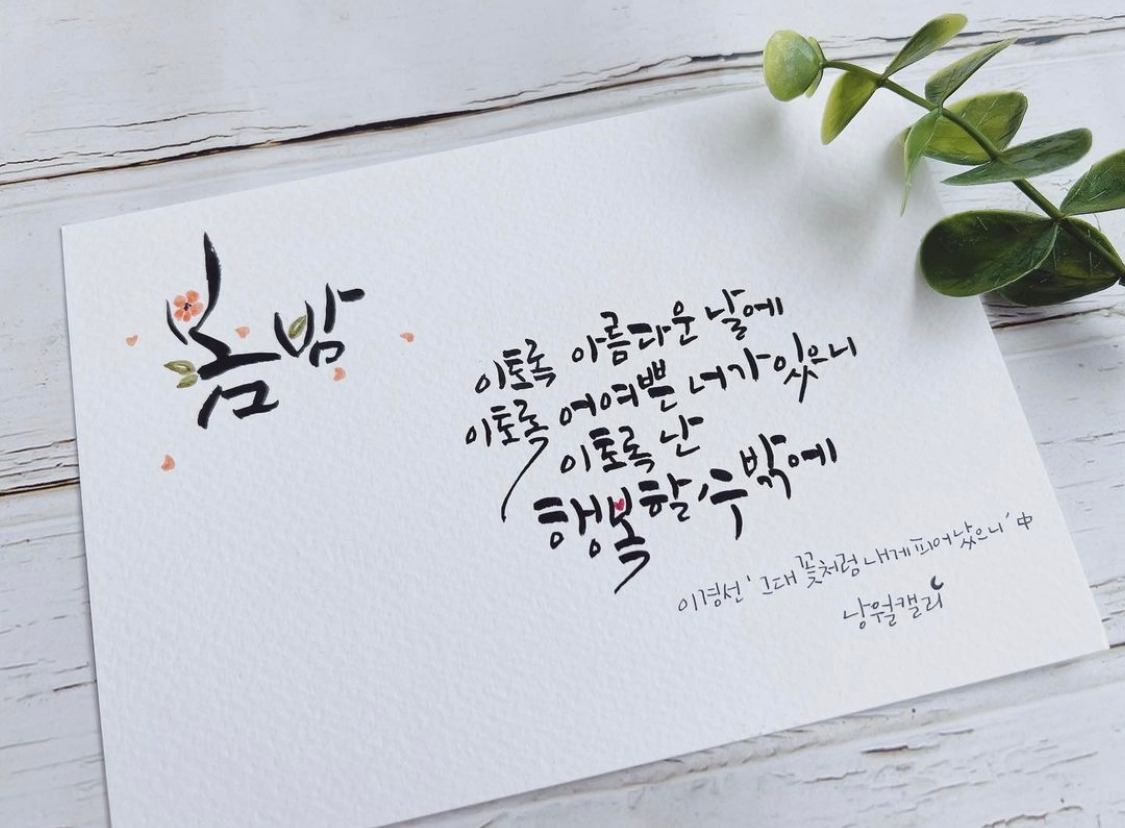 봄밤
이토록 아름다운 날에
이토록 어여쁜 너가 있으니
이토록 난
행복할 수밖에
이경선 '그대 꽃처럼 내게 피어났으니' 中
낭월캘리